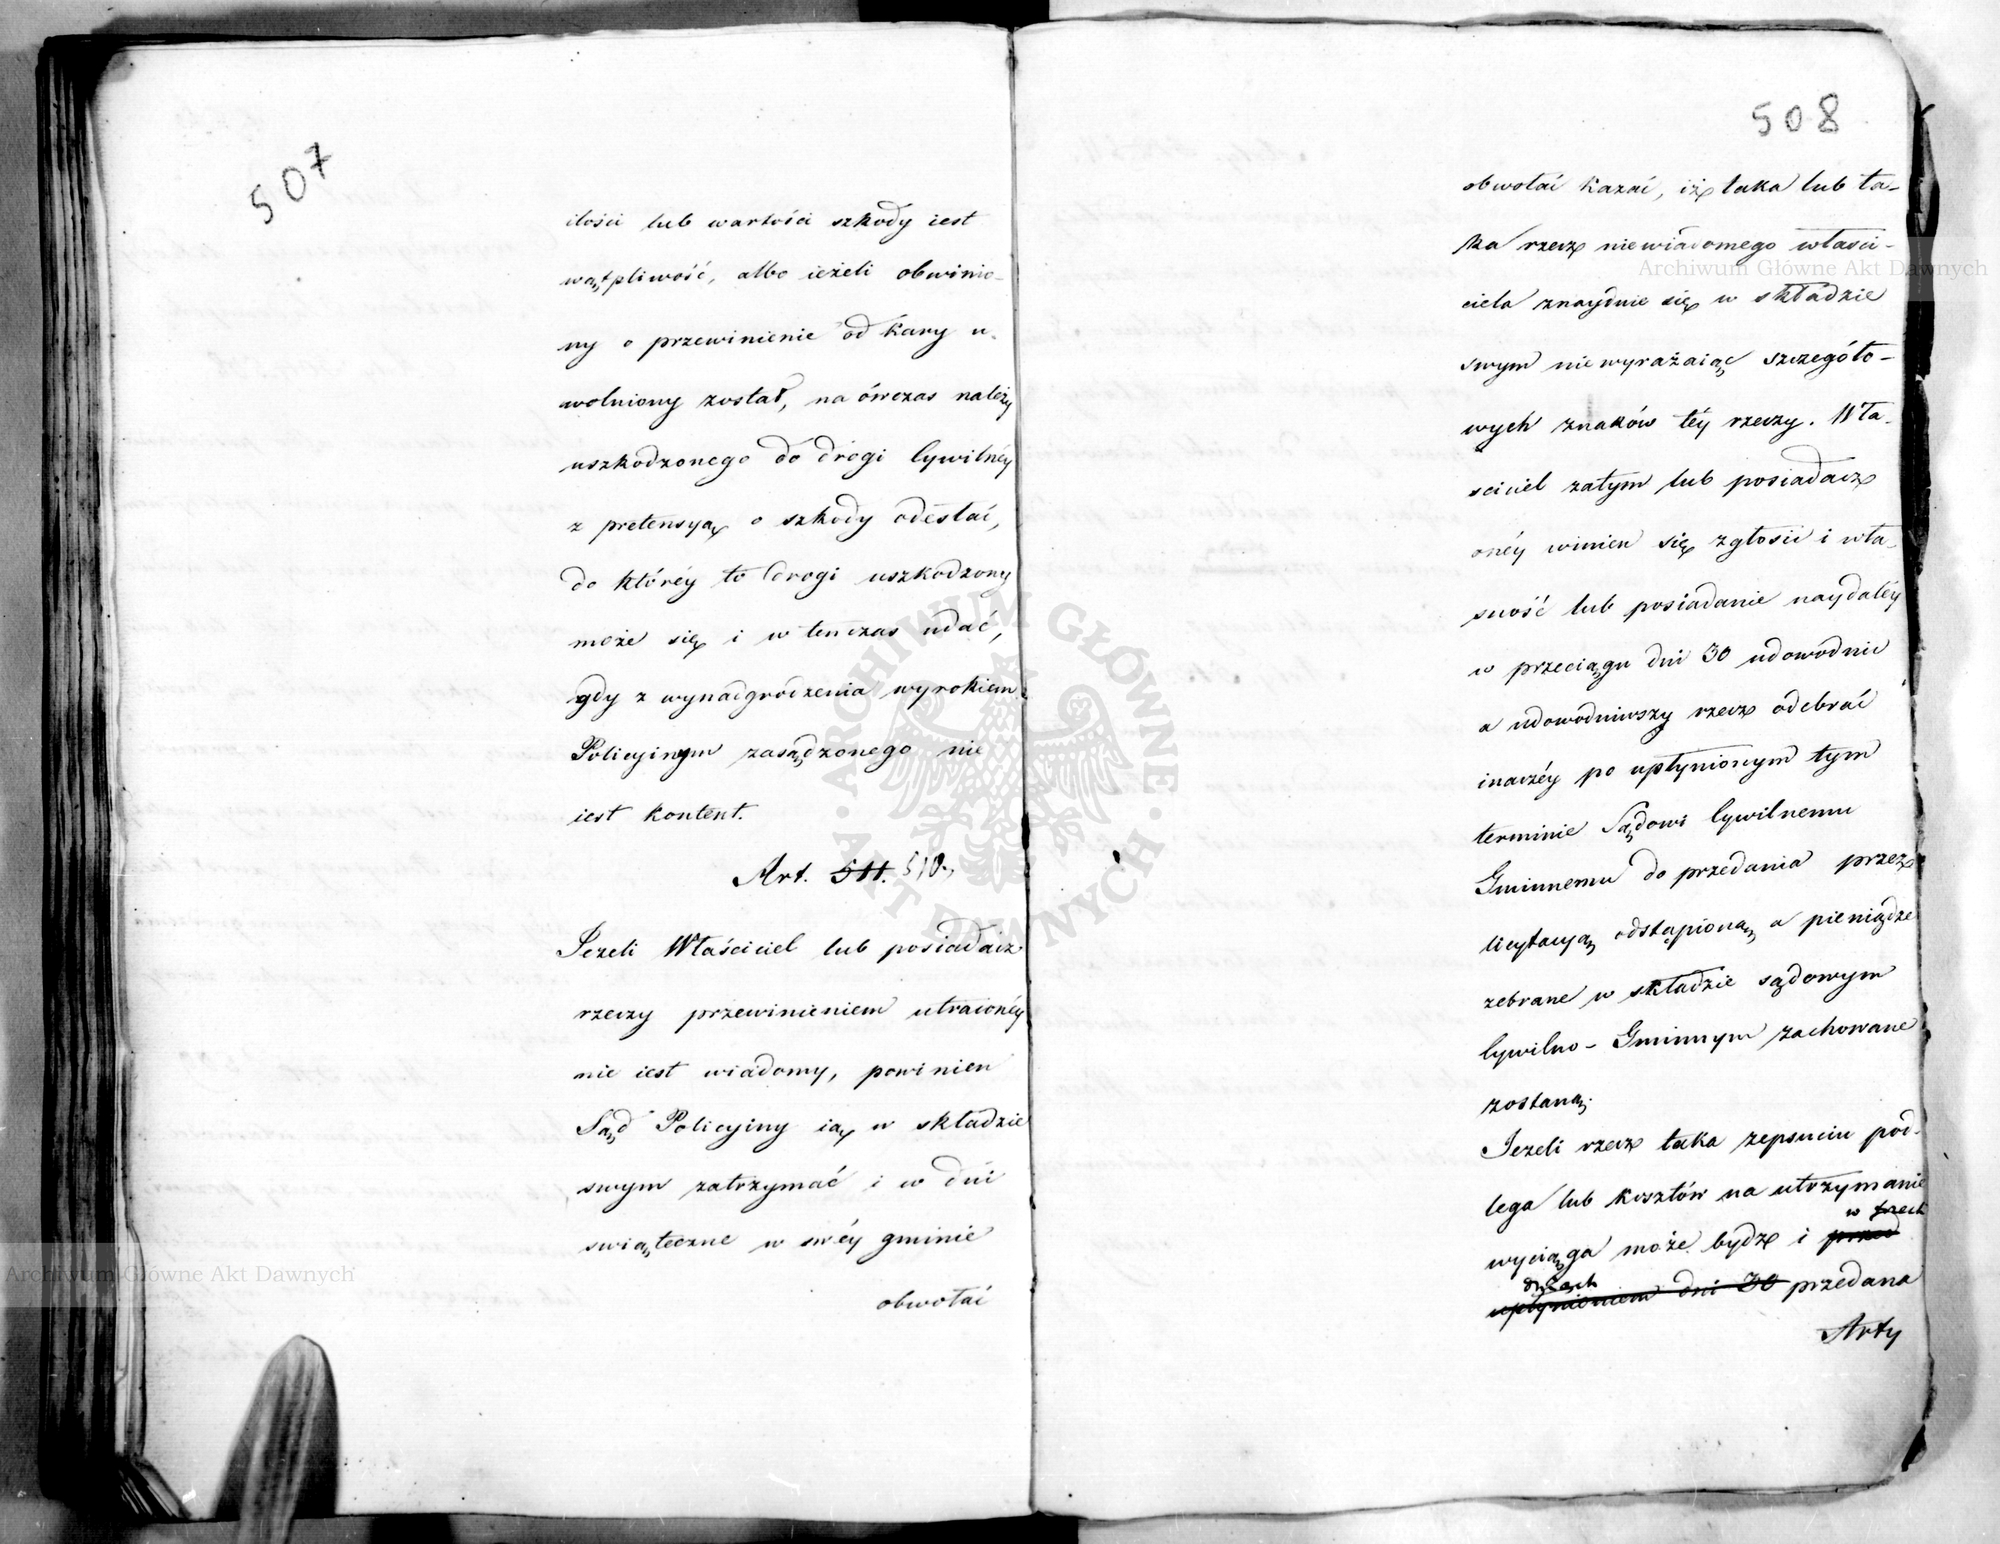 507
ilości lub wartości szkody iest
wątpliwość, albo ieżeli obwinio-
ny o przewinienie od kary u-
wolniony został, na ówczas należy
uszkodzonego do drogi Cywilnéy
z pretensyą o szkody odesłać,
do któréy to drogi uszkodzony
może się i w tenczas udać,
gdy z wynadgrodzenia wyrokiem
Policyinym zasądzonego nie
iest kontent.
Art. 511. 510.
Jeżeli Właściciel lub posiadacz
rzeczy przewinieniem utraconéy
nie iest wiadomy, powinien
Sąd Policyiny ią w składzie
swym zatrzymać i w dni
swiąteczne w swéy gminie
obwołać
508
obwołać kazać, iż taka lub ta-
ka rzecz niewiadomego własci-
ciela znayduie się w składzie
swym niewyrażaiąc szczegóło-
wych znaków téy rzeczy. Wła-
sciciel zatym lub posiadacz
onéy winien się zgłosić i wła-
sność lub posiadanie naydaléy
w przeciągu dni 30 udowodnić
a udowodniwszy rzecz odebrać
inaczéy po upłynionym tym
terminie Sądowi Cywilnemu
Gminnemu do przedania przez
licytacyą odstąpioną a pieniądze
zebrane w składzie sądowym
Cywilno-Gminnym zachowane
zostaną.
Jeżeli rzecz taka zepsuciu pod-
lega lub kosztów na utrzymanie
w trzech
wyciąga może bydź i przed
dniach
upłynieniem dni 30 przedana
Arty
Archiwum Główne Akt Dawnych
Archiwum Główne Akt Dawnych
ARCHIWUM GŁÓWNE AKT DAWNYCH